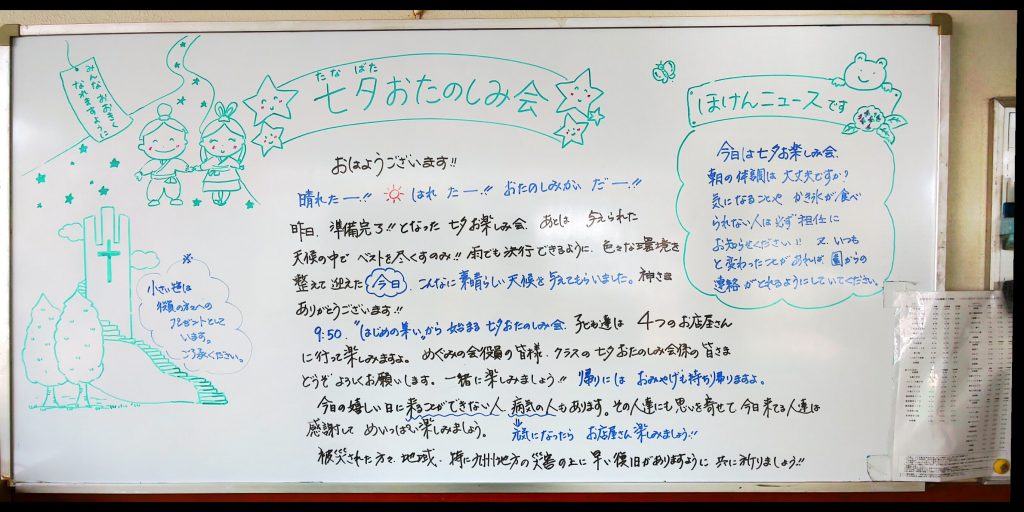 みんな おおきく
なれますように
たなばた
七夕おたのしみ会
おはようございます!!
晴れたー!! はれ たー!! おたのしみかい だー!!
昨日、準備完了!!となった 七夕お楽しみ会、あとは 与えられた
天候の中で ベストを尽くすのみ!! 雨でも決行できるように、色々な環境を
整えて迎えた 今日、こんなに素晴らしい天候を与えてもらいました。神さま
ありがとうございます!!
9:50、"はじめの集い"から 始まる 七夕おたのしみ会、子ども達は 4つのお店屋さん
に行って楽しみますよ。めぐみの会役員の皆様、クラスの七夕おたのしみ会係の皆さま
どうぞよろしくお願いします。一緒に楽しみましょう!! 帰りには おみやげも持ち帰りますよ。
今日の嬉しい日に来ることができない人、病気の人もあります。その人達にも思いを寄せて 今日来てる人達は
感謝して めいっぱい楽しみましょう。 元気になったら お店屋さん楽しみましょう!!
被災された方々、地域、特に九州地方の災害の上に 早い復旧がありますように 共に祈りましょう!!
小さい組は
役員の方々への
プレゼントとして
います。
ご了承ください。
ほけんニュースです
今日は七夕お楽しみ会、
朝の体調は大丈夫ですか?
気になることや かき氷が食べ
られない人は必ず担任に
お知らせください!! 又、いつも
と変わったことがあれば、園からの
連絡がとれるようにしていてください。